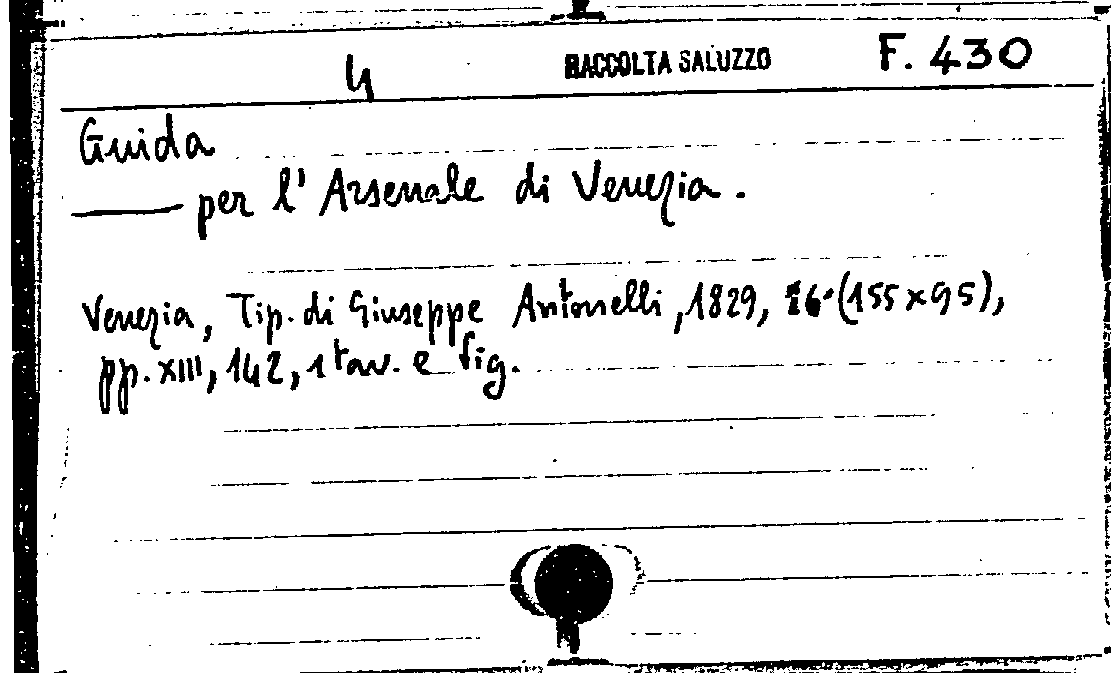 4 RACCOLTA SALUZZO F. 430
Guida
—— per l'Arsenale di Venezia.
Venezia, Tip. di Giuseppe Antonelli, 1829, 16° (155x95),
pp. XIII, 142, 1 tav. e fig.